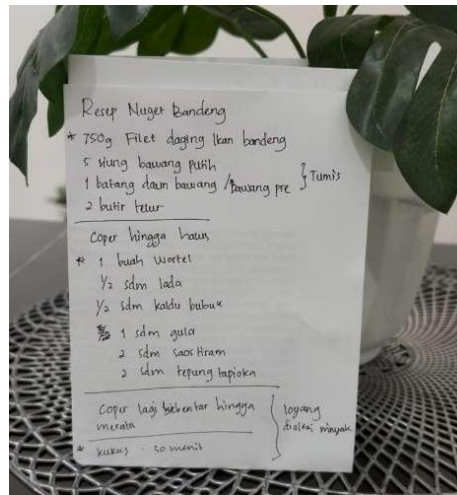 Resep Nuget Bandeng
* 750g Filet daging Ikan bandeng
5 siung bawang putih
1 batang daun bawang / Bawang pre } Tumis
2 butir telur
Coper hingga halus
* 1 buah wortel
1/2 sdm lada
1/2 sdm kaldu bubuk
1 sdm gula
2 sdm saos tiram
2 sdm tepung tapioka
Coper lagi sebentar hingga
merata
* kukus - 30 menit
loyang
diolesi minyak